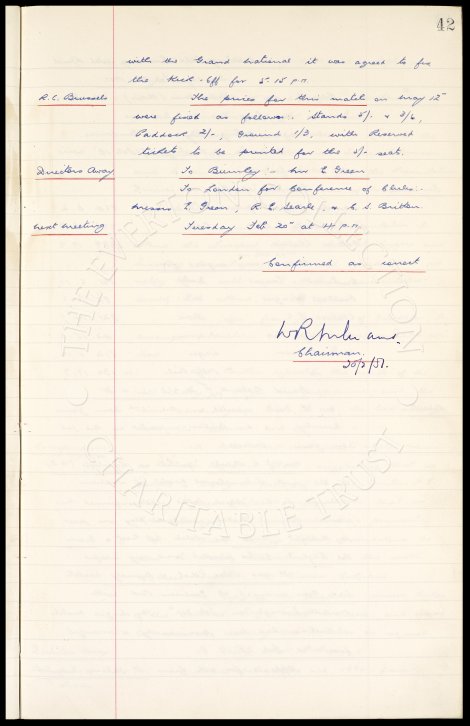 42
with the Grand National it was agreed to fix
the Kick-Off for 5.15 p.m.
R.C. Brussels The prices for this match on May 12th
were fixed as follows. Stands 5/- & 3/6,
Paddock 2/-, Ground 1/3, with Reserved
tickets to be printed for the 5/- seat.
Directors Away To Burnley – Mr E Green
To London for Conference of Clubs.
Messrs E. Green, R.E. Searle, & C.S. Britten
Next Meeting Tuesday Feb 20th at 4 p.m.
Confirmed as correct
Chairman.
20/2/51.
THE EVERTON COLLECTION
CHARITABLE TRUST